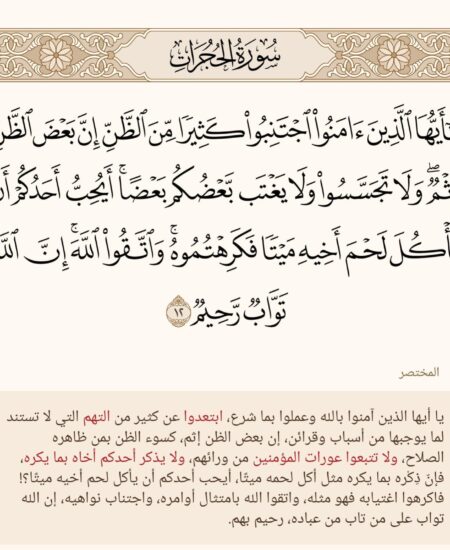 سُورَةُ الحُجُرَاتِ
يَٰٓأَيُّهَا ٱلَّذِينَ ءَامَنُوا۟ ٱجْتَنِبُوا۟ كَثِيرًا مِّنَ ٱلظَّنِّ إِنَّ بَعْضَ ٱلظَّنِّ
إِثْمٌ ۖ وَلَا تَجَسَّسُوا۟ وَلَا يَغْتَب بَّعْضُكُم بَعْضًا ۚ أَيُحِبُّ أَحَدُكُمْ أَن
يَأْكُلَ لَحْمَ أَخِيهِ مَيْتًا فَكَرِهْتُمُوهُ ۚ وَٱتَّقُوا۟ ٱللَّهَ ۚ إِنَّ ٱللَّهَ
تَوَّابٌ رَّحِيمٌ ١٢
المختصر
يا أيها الذين آمنوا بالله وعملوا بما شرع، ابتعدوا عن كثير من التهم التي لا تستند
لما يوجبها من أسباب وقرائن، إن بعض الظن إثم، كسوء الظن بمن ظاهره
الصلاح، ولا تتبعوا عورات المؤمنين من ورائهم، ولا يذكر أحدكم أخاه بما يكره،
فإنّ ذِكْره بما يكره مثل أكل لحمه ميتًا، أيحب أحدكم أن يأكل لحم أخيه ميتًا؟!
فاكرهوا اغتيابه فهو مثله، واتقوا الله بامتثال أوامره، واجتناب نواهيه، إن الله
تواب على من تاب من عباده، رحيم بهم.